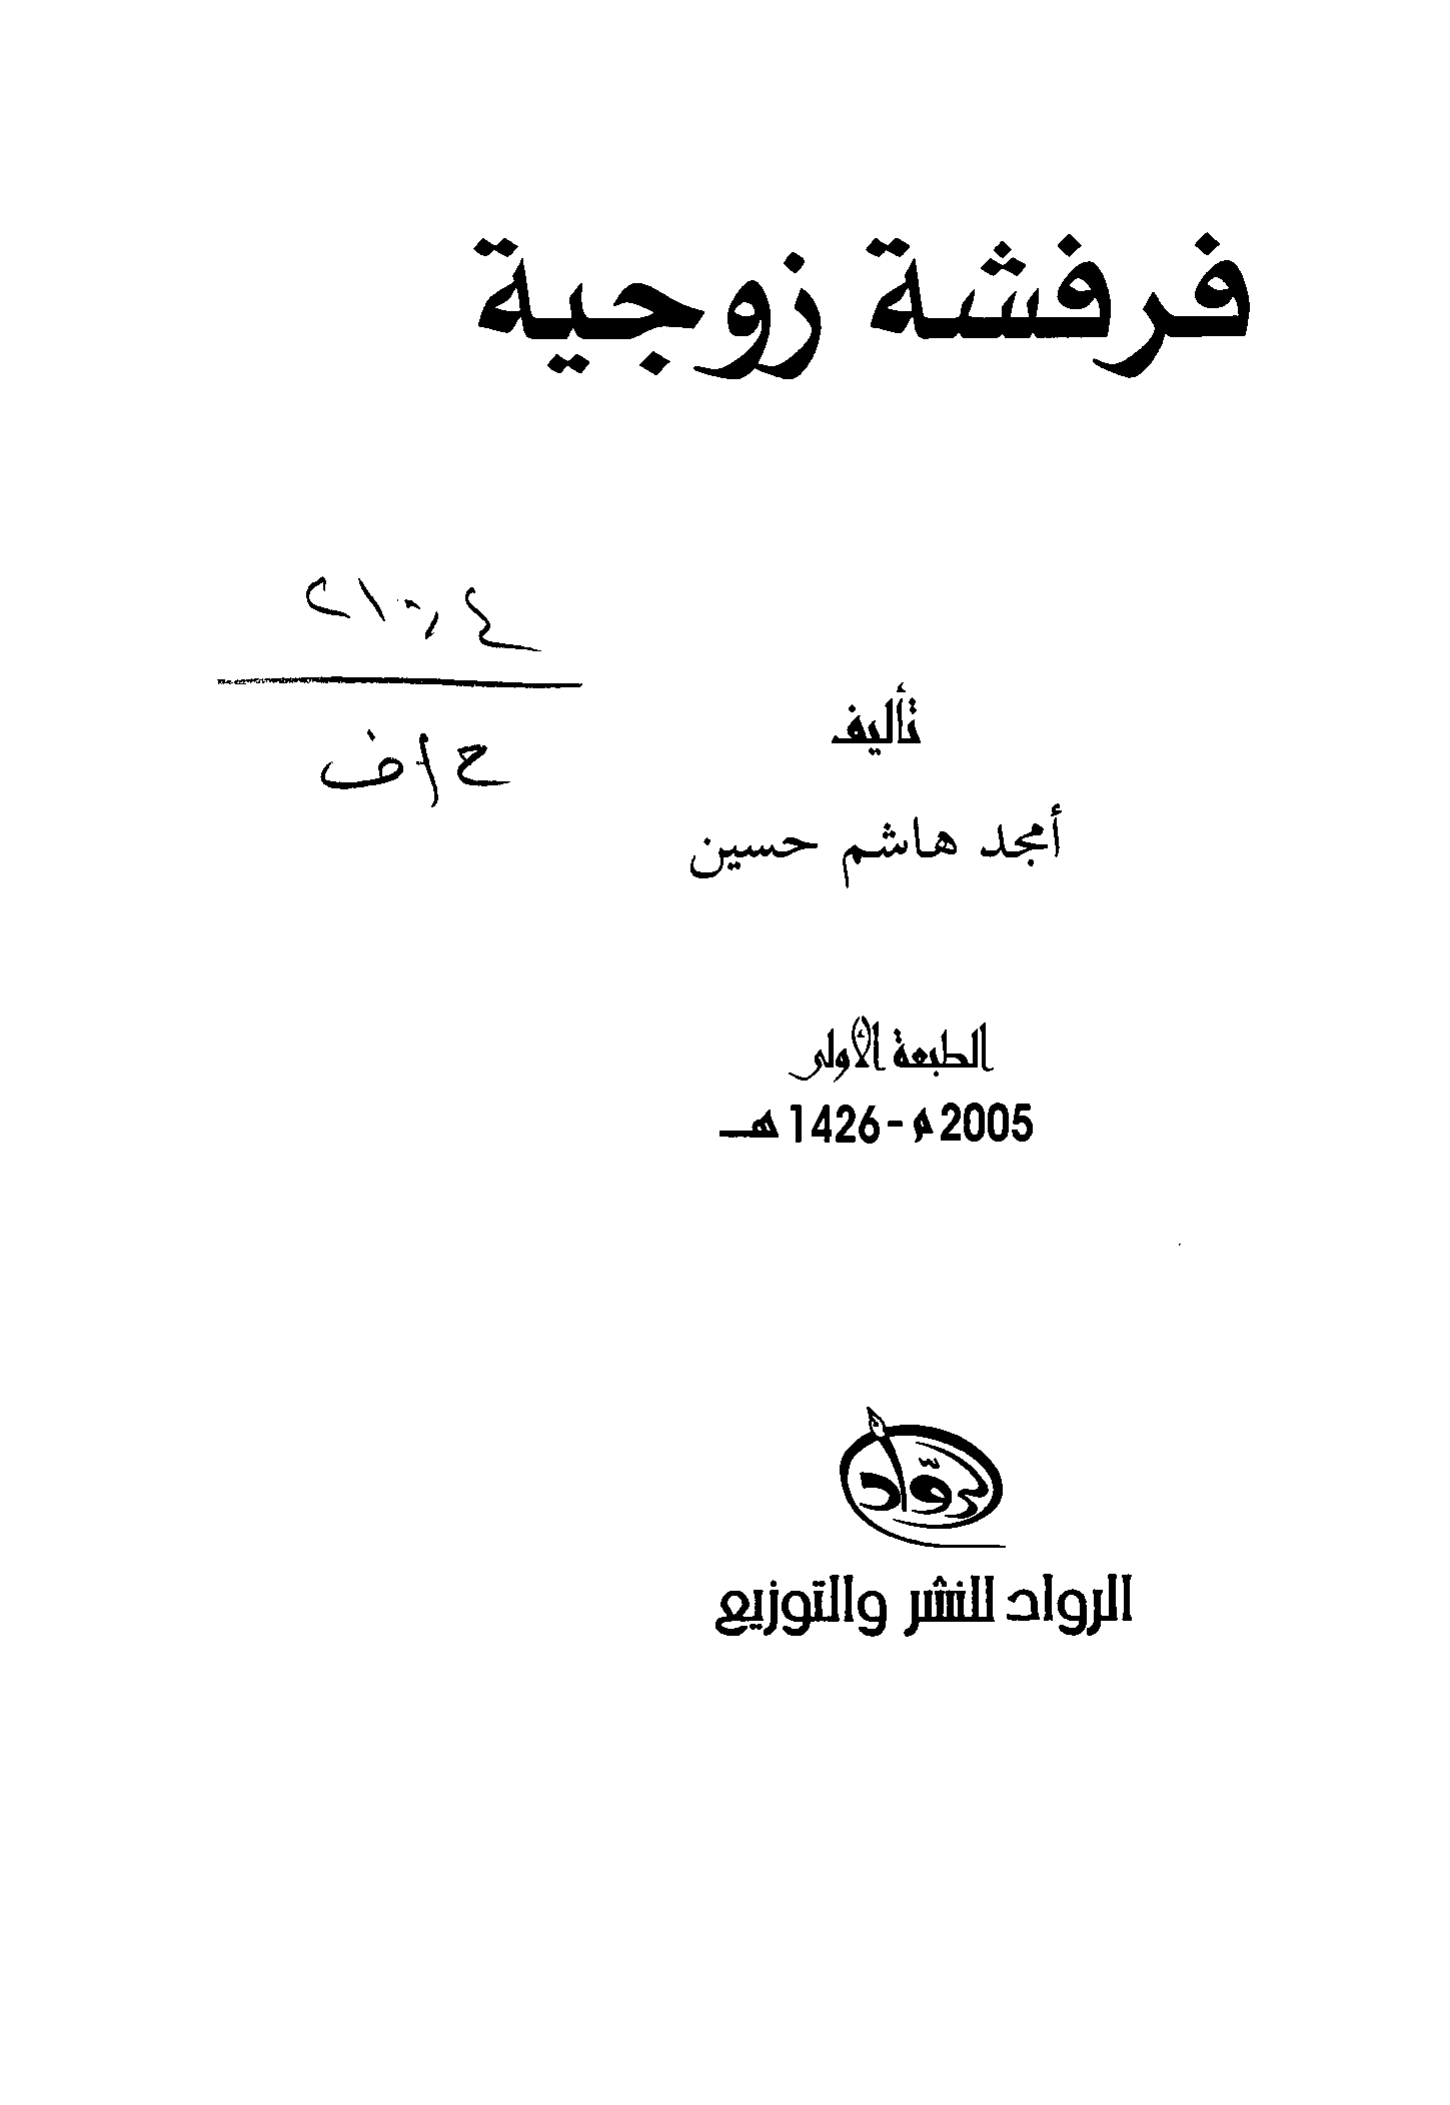 فرفشة زوجية
تأليف
أمجد هاشم حسين
ح / ف
الطبعة الأولى
2005م - 1426هـ
رواد
الرواد للنشر والتوزيع